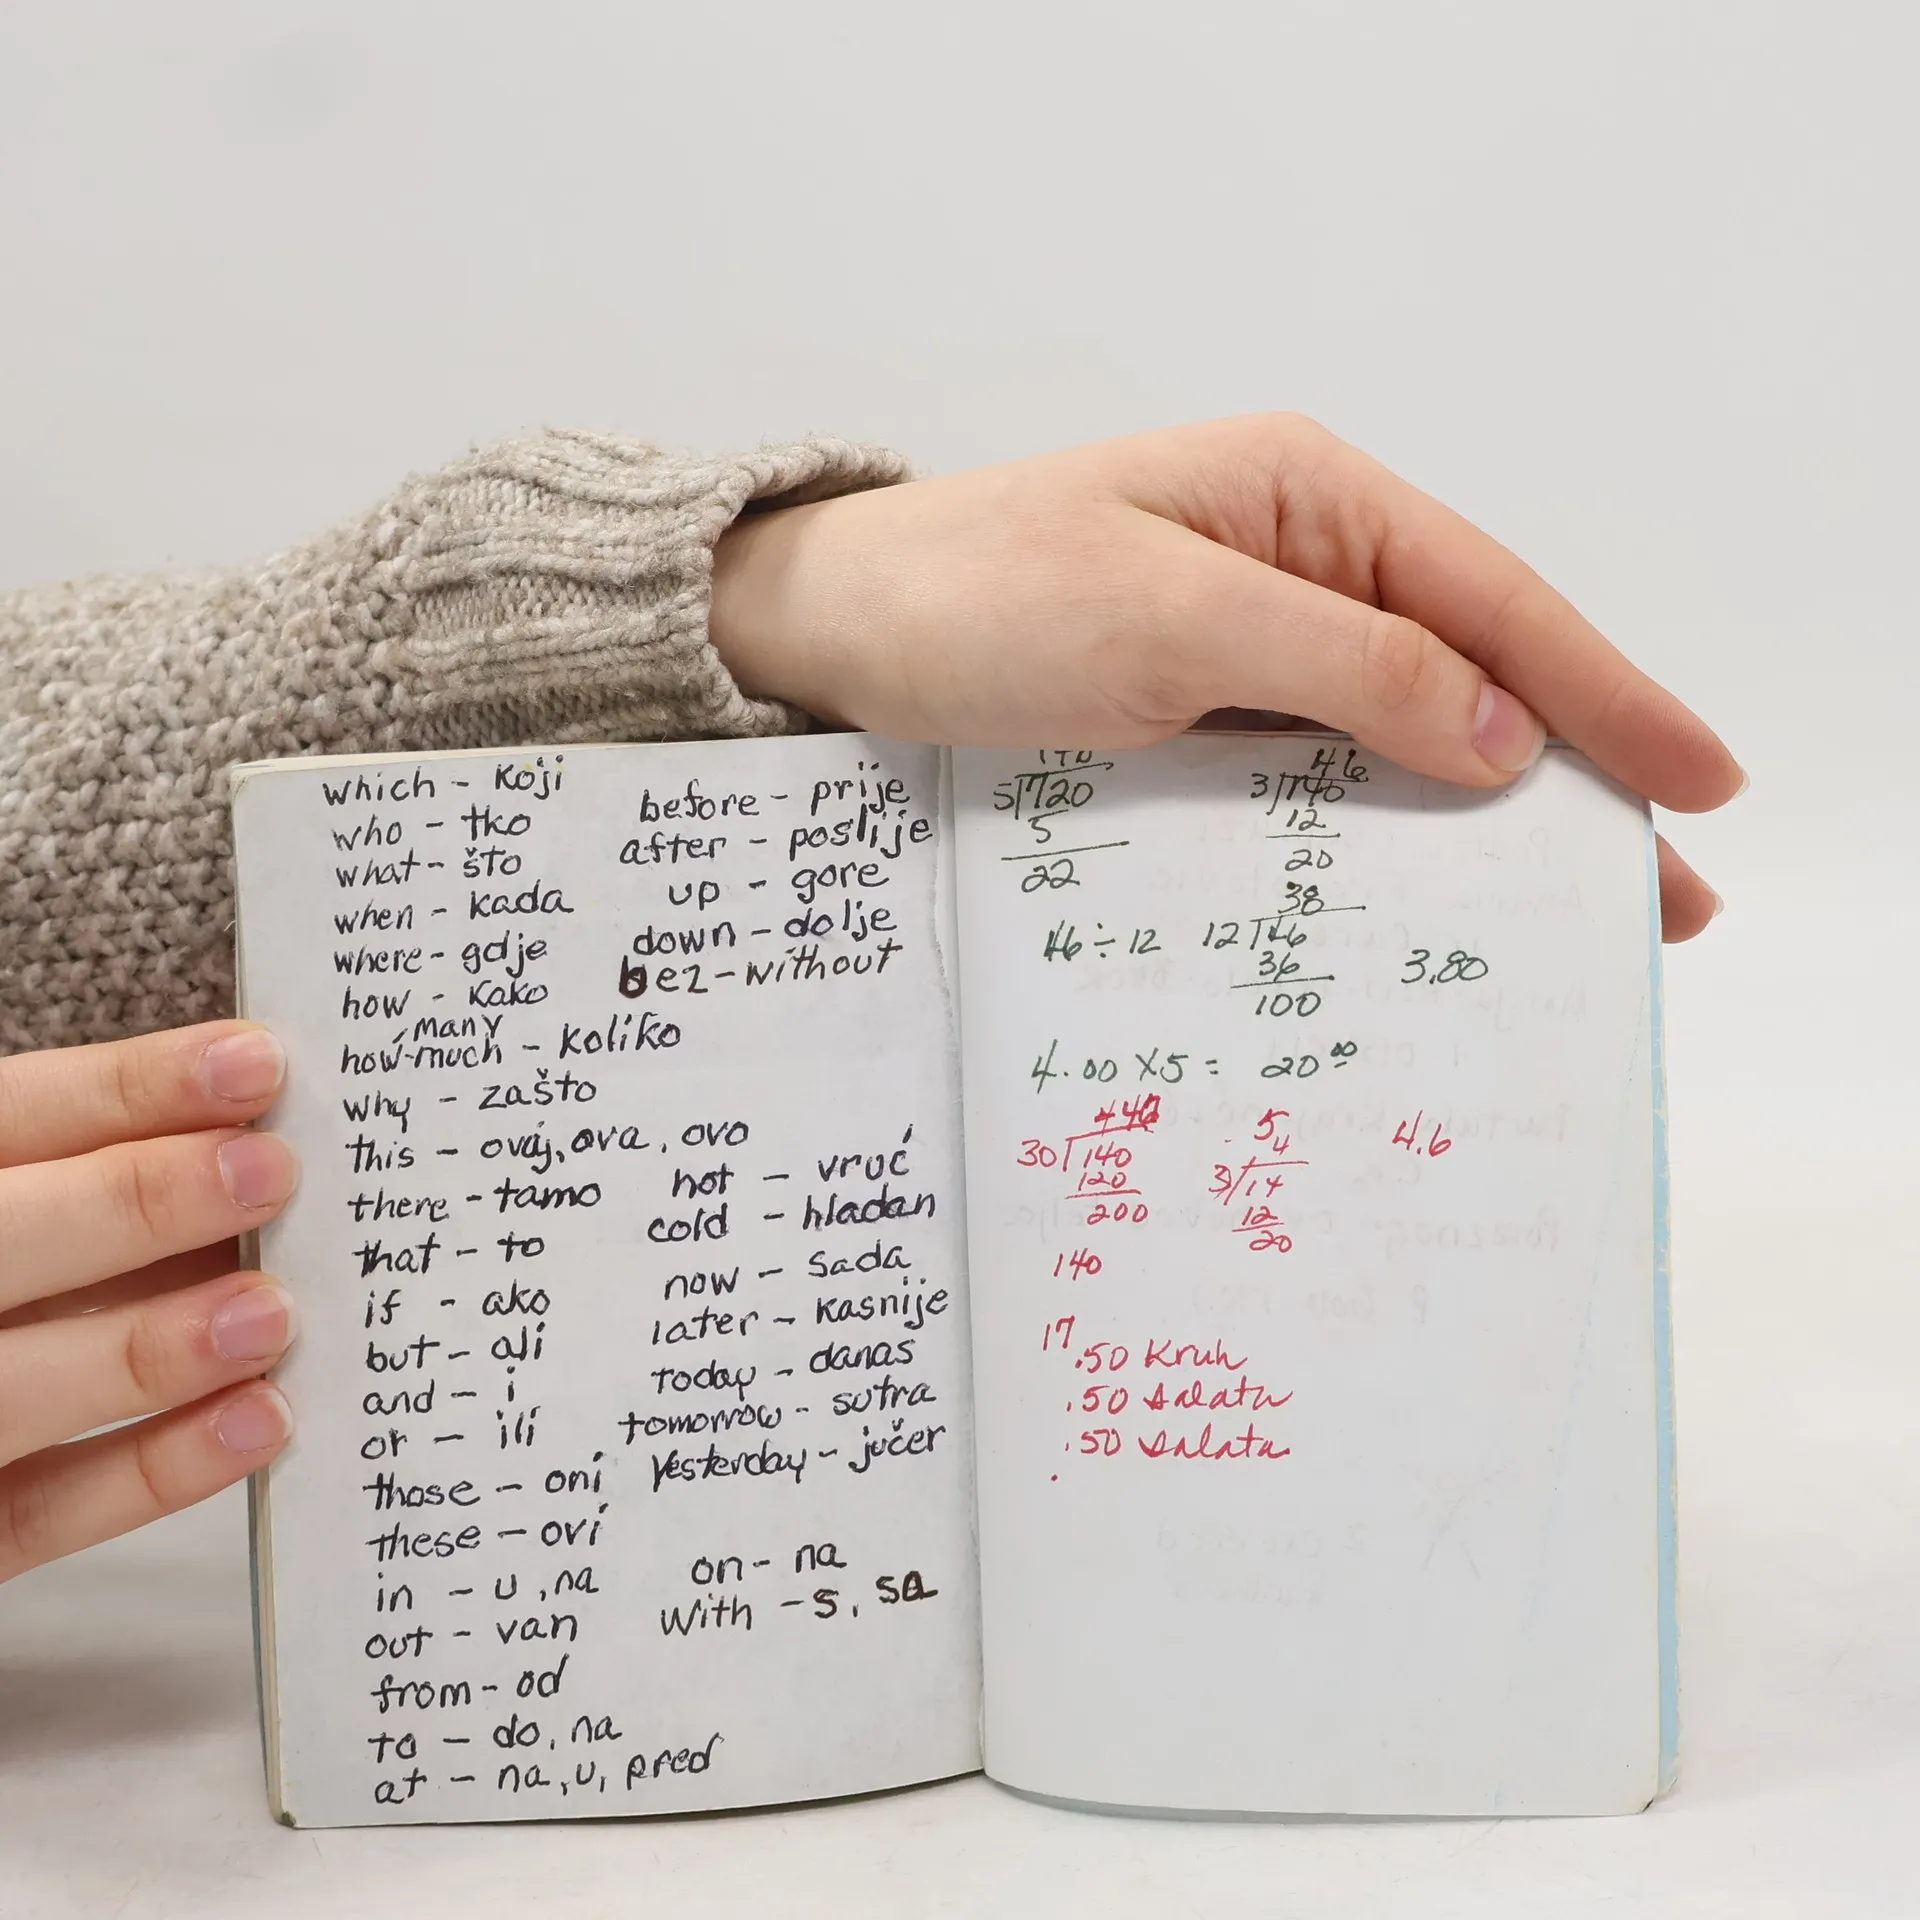 which - koji
who - tko
what - što
when - kada
where - gdje
how - kako
many
how-much - koliko
why - zašto
this - ovaj, ova, ovo
there - tamo
that - to
if - ako
but - ali
and - i
or - ili
those - oni
these - ovi
in - u, na
out - van
from - od
to - do, na
at - na, u, pred
before - prije
after - poslije
up - gore
down - dolje
bez - without
hot - vruć
cold - hladan
now - sada
later - kasnije
today - danas
tomorrow - sutra
yesterday - jučer
on - na
with - s, sa
5)720
5
22
46
3)140
12
20
38
46 ÷ 12 12)46 3.80
36
100
4.00 x 5 = 20.00
30)140
120
200
5
4
3)14
12
20
4.6
140
17
.50 Kruh
.50 salata
.50 salata
.